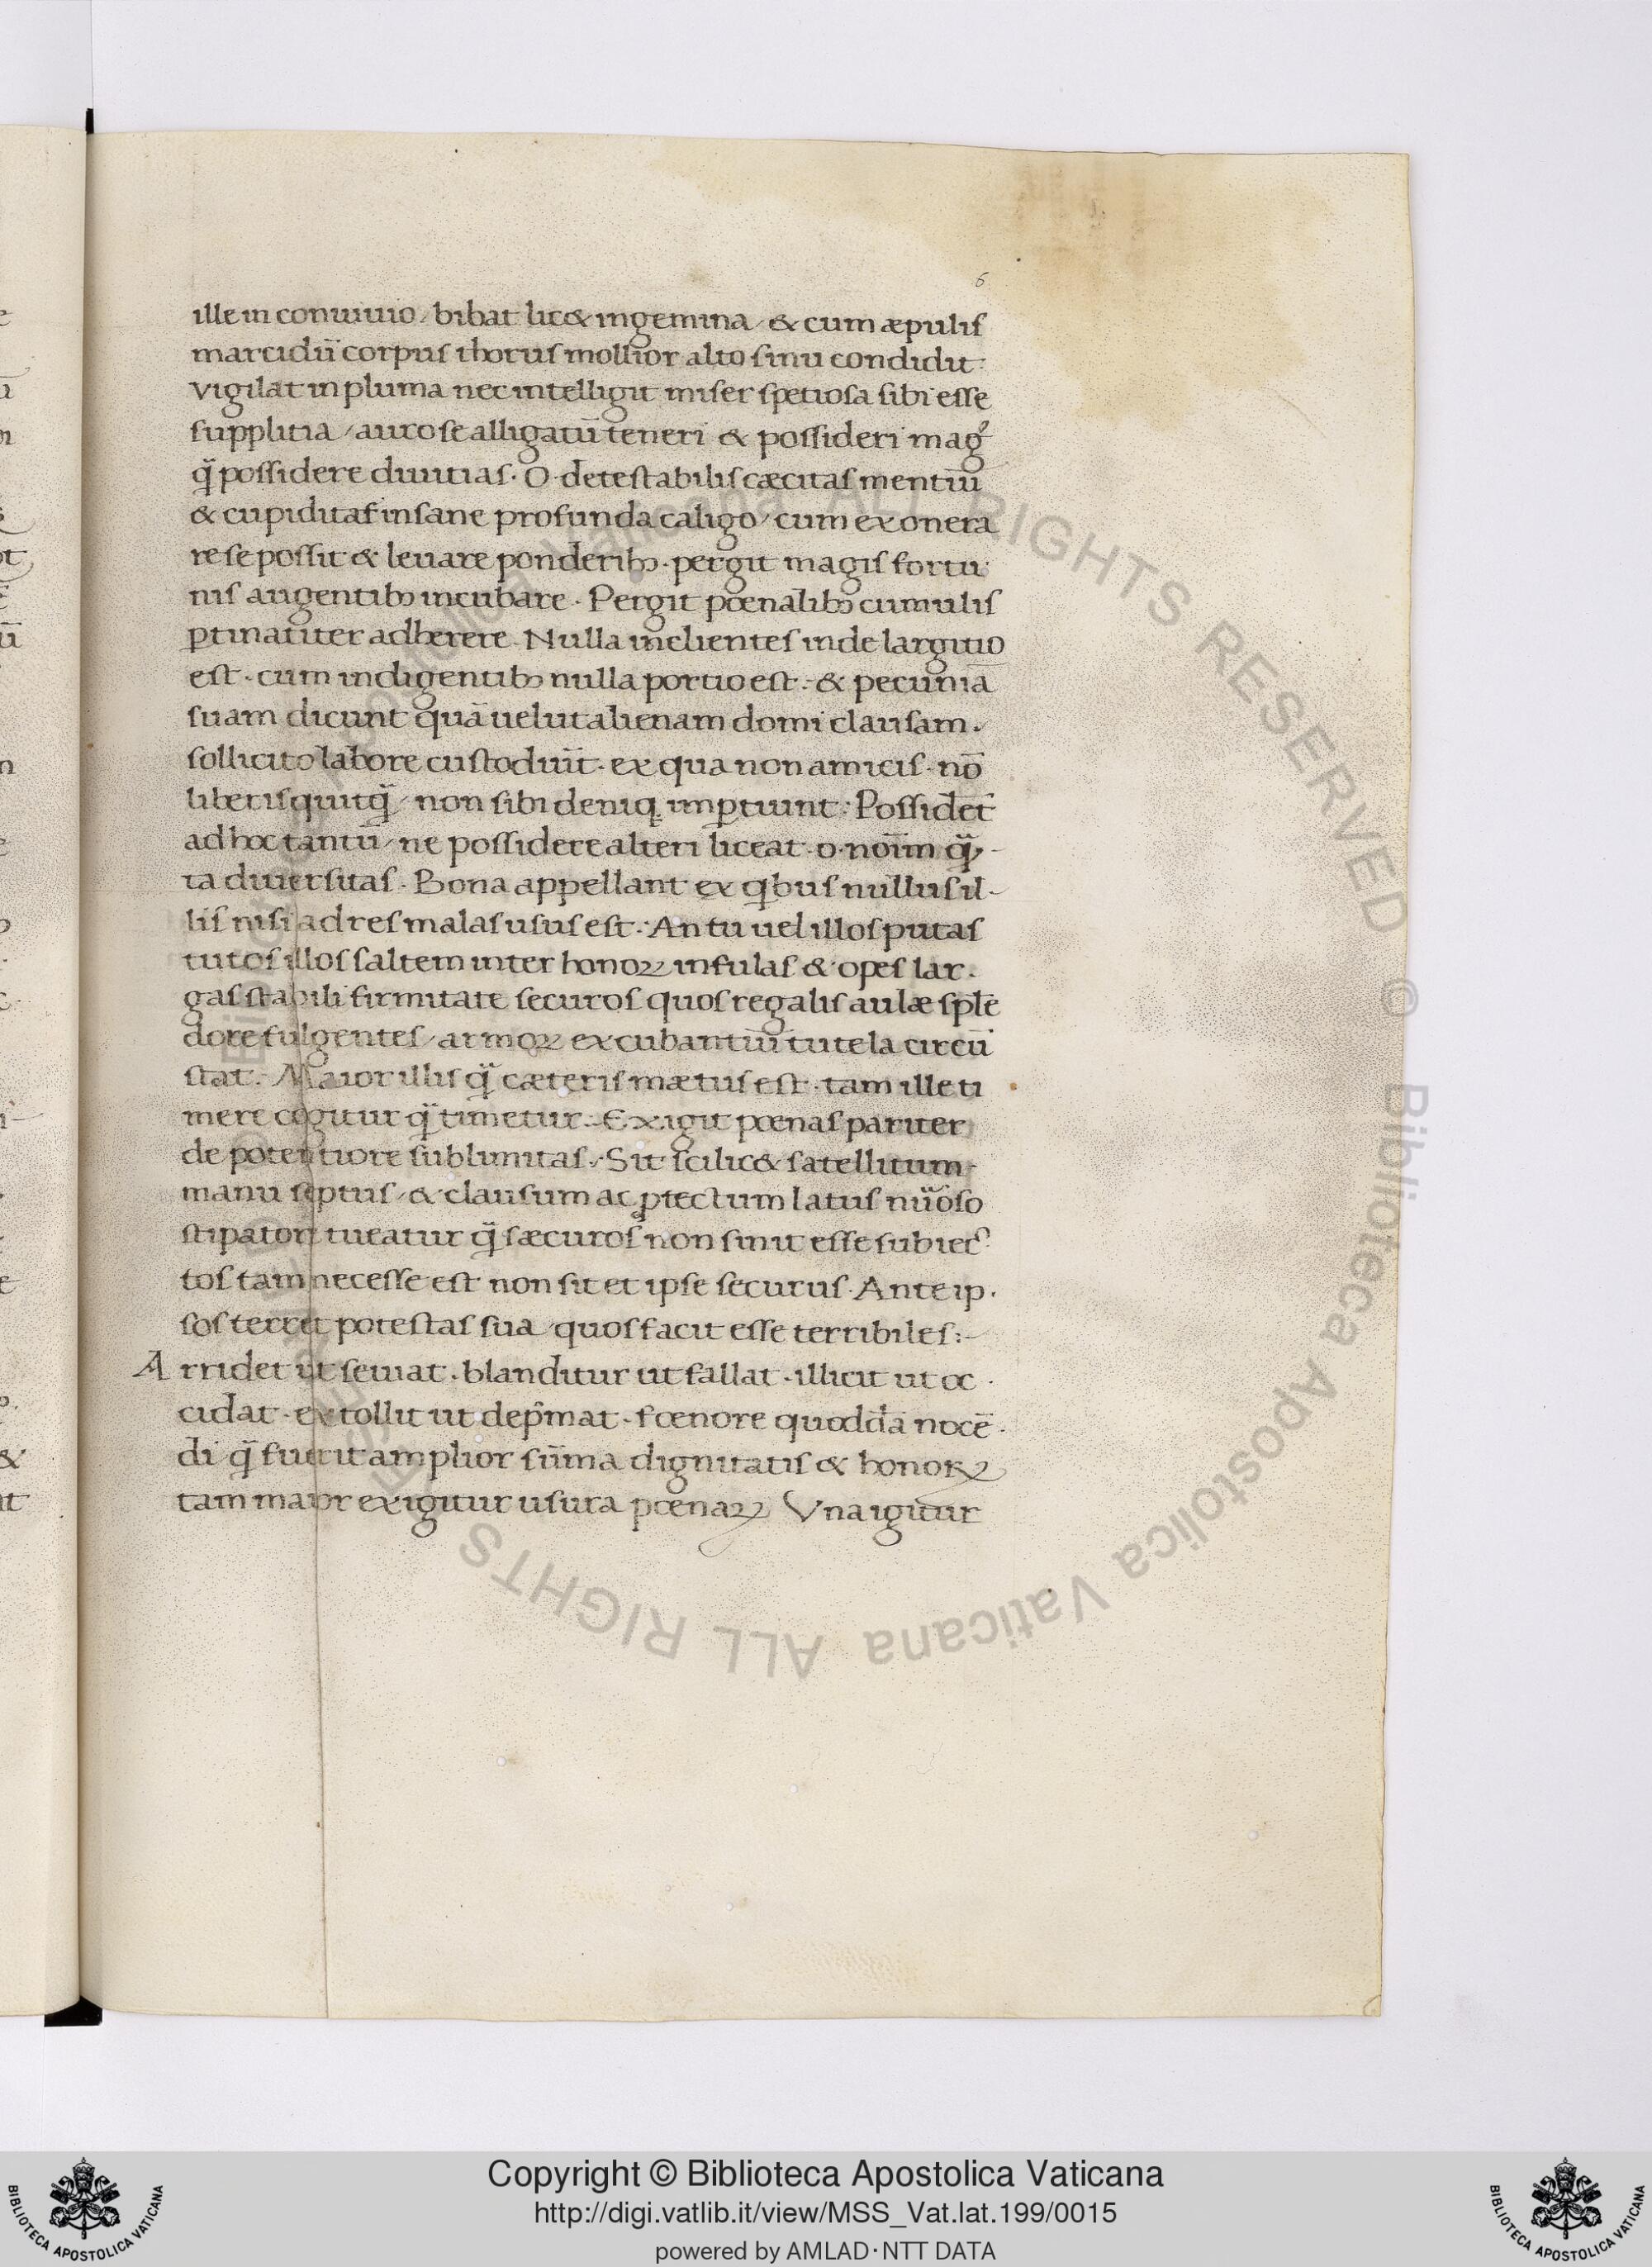 6
ille in conuiuio / bibat lic& in gemina / & cum æpulis
marcidū corpus thorus mollior alto sinu condidit:
vigilat in pluma nec intelligit miser spetiosa sibi esse
supplitia / auro se alligatū teneri & possideri mag᷒
q̃ possidere diuitias. O detestabilis cæcitas mentiū
& cupiditatis insane profunda caligo / cum exonera
re se possit & leuare ponderibꝫ. pergit magis fortu
nis augentibꝫ incubare. Pergit pœnalibꝫ cumulis
ꝑtinatiter adherere. Nulla in clientes inde largitio
est. cum indigentibꝫ nulla portio est. & pecuniā
suam dicunt quā uelut alienam domi clausam.
sollicito labore custodiūt. ex qua non amicis. nō
liberis quitq̃ / non sibi deniqꝫ imꝑtiunt: Possidēt
ad hoc tantū / ne possidere alteri liceat. o. noīm q̃
ta diuersitas. Bona appellant ex qͥbus nullus il-
lis nisi ad res malas usus est. An tu uel illos putas
tutos illos saltem inter honoꝝ infulas & opes lar.
gas stabili firmitate securos quos regalis aulæ splē
dore fulgentes / armoꝝ excubantiū tutela circū
stat. Maior illis q̃ cæteris mætus est. tam ille ti
mere cogitur q̃ timetur. Exigit pœnas pariter
de potentiore sublimitas. Sit scilic& satellitum
manu septus / & clausum ac ꝓtectum latus nūoso
stipatore tueatur q̃ sæcuros non sinit esse subiec
tos tam necesse est non sit et ipse securus. Ante ip.
sos terret potestas sua quos facit esse terribiles:-
Arridet ut seuiat. blanditur ut fallat. illicit ut oc.
cidat. extollit ut dep̄mat. fœnore quoddā nocē.
di q̃ fuerit amplior sūma dignitatis & honoꝝ
tam maior exigitur usura pœnaꝝ Vna igitur
© Biblioteca Apostolica Vaticana ALL RIGHTS RESERVED © Biblioteca Apostolica Vaticana ALL RIGHTS RESERVED
Copyright © Biblioteca Apostolica Vaticana
http://digi.vatlib.it/view/MSS_Vat.lat.199/0015
powered by AMLAD·NTT DATA
BIBLIOTECA APOSTOLICA VATICANA
BIBLIOTECA APOSTOLICA VATICANA